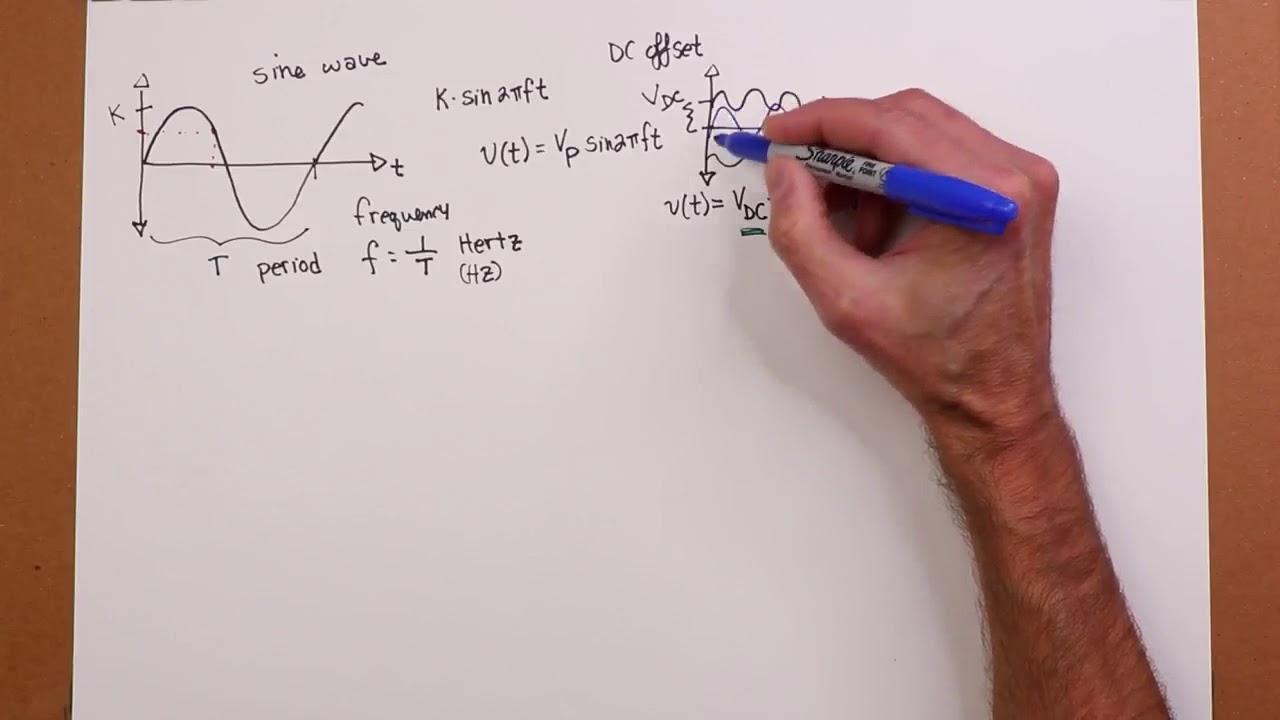 sine wave
K
K·sin2πft
v(t) = Vp sin2πft
t
T period
frequency
f = 1/T Hertz
(HZ)
DC offset
VDC
v(t) = VDC
Sharpie
FINE
POINT